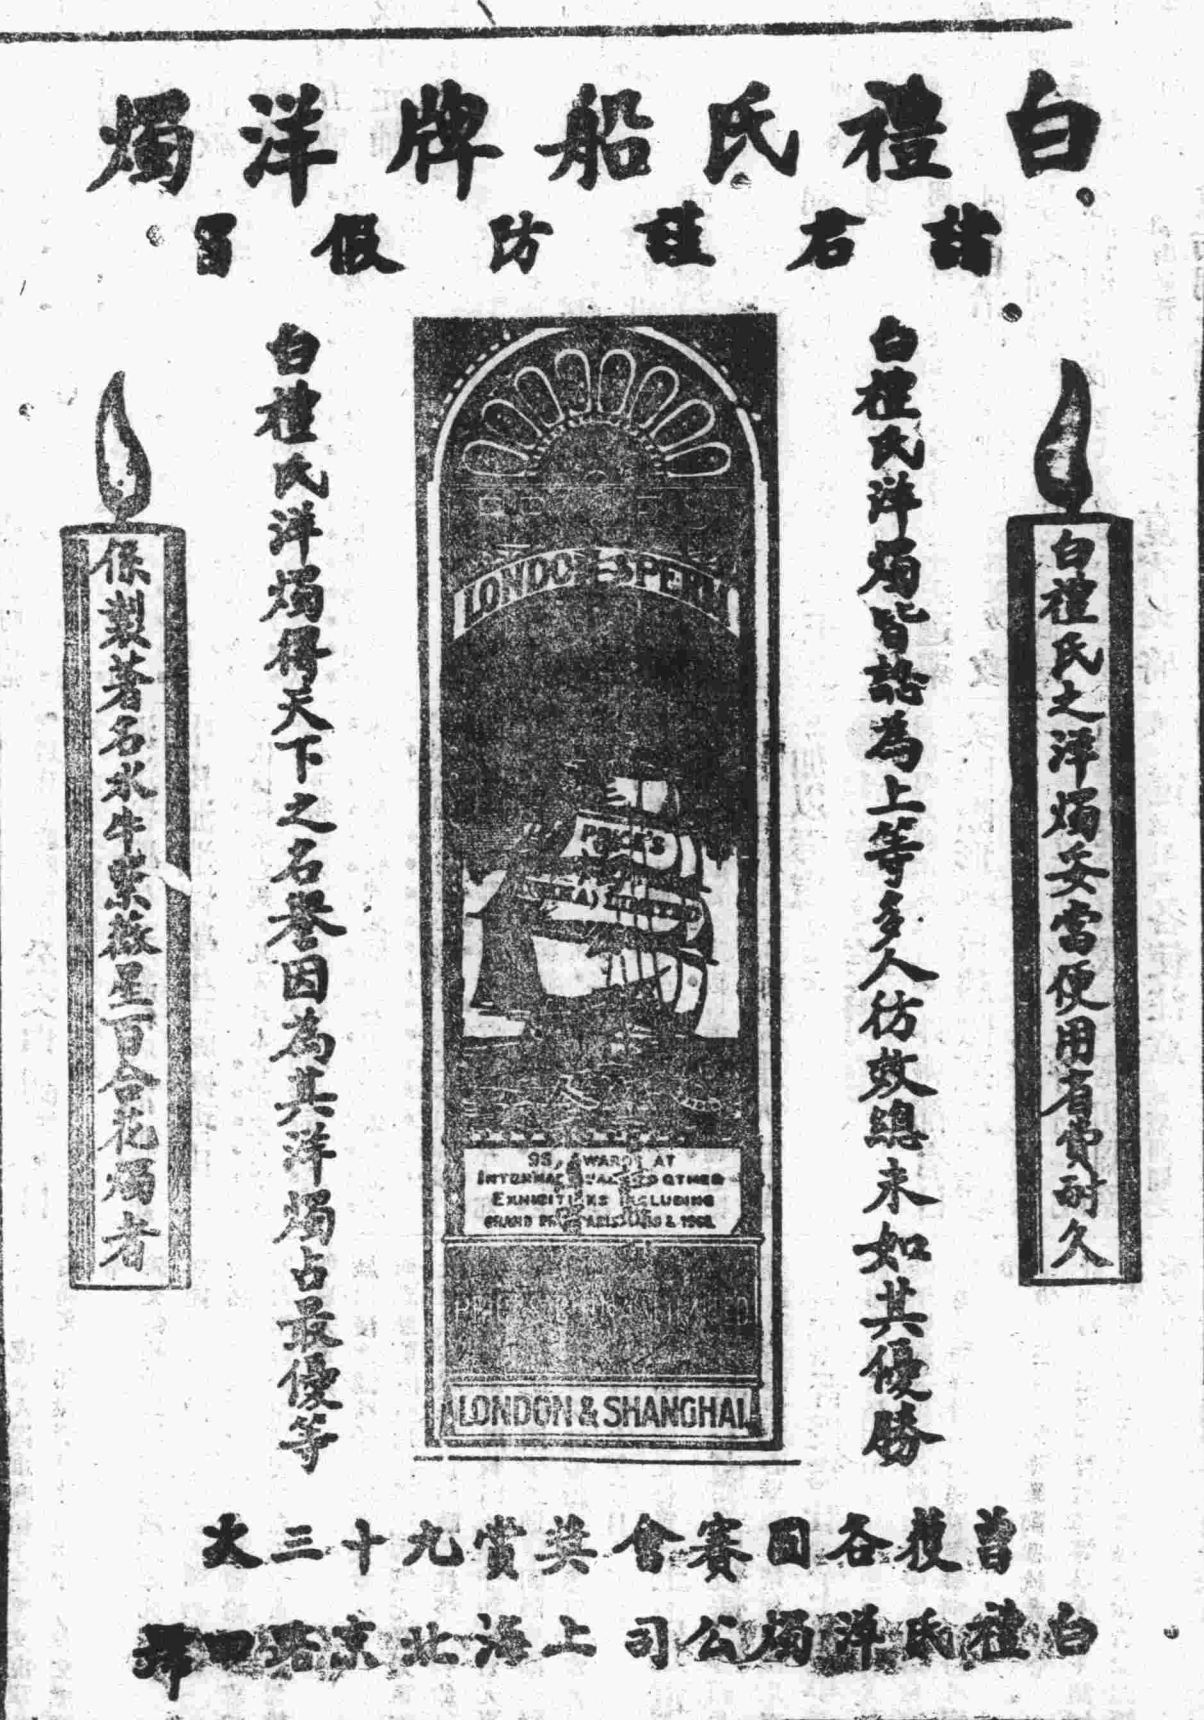 白禮氏船牌洋燭
諸君謹防假冒
白禮氏之洋燭妥當便用省費耐久
白禮氏洋燭皆認為上等多人彷效總未如其優勝
PRICE'S
LONDON SPERM
PRICE'S
(CHINA) LIMITED
95, AWARDS AT
INTERNATIONAL AND OTHER
EXHIBITIONS INCLUDING
GRAND PRIX PARIS
LONDON & SHANGHAI
白禮氏洋燭得天下之名譽因為其洋燭占最優等
保製著名水牛紫薇星百合花燭者
曾獲各國賽會獎賞九十三次
白禮氏洋燭公司上海北京路四號